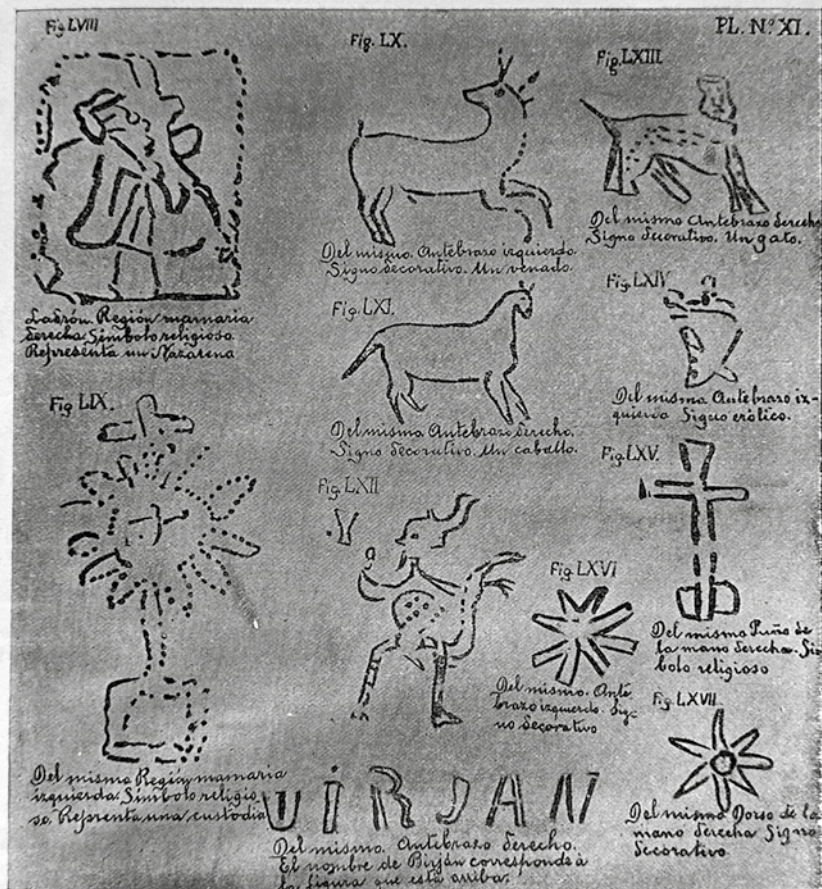 Fig. LVIII
PL. Nº XI.
Ladrón. Región mamaria
derecha. Símbolo religioso.
Representa un Nazareno
Fig. LIX.
Del mismo Región mamaria
izquierda. Símbolo religio-
so. Reprsenta una custodia
Fig. LX.
Del mismo. Antebrazo izquierdo.
Signo decorativo. Un venado.
Fig. LXI.
Del mismo Antebrazo derecho.
Signo decorativo. Un caballo.
Fig. LXII
.V
UIRJAN
Del mismo. Antebrazo derecho.
El nombre de Birján corresponde à
la figura que está arriba.
Fig. LXIII.
Del mismo Antebrazo derecho
Signo decorativo. Un gato.
Fig. LXIV
Del mismo Antebrazo iz-
quierdo Signo erótico.
Fig. LXV.
Del mismo Puño de
la mano derecha. Sím
bolo religioso
Fig. LXVI
Del mismo. Ante
brazo izquierdo. Sig-
no decorativo
Fig. LXVII.
Del mismo Dorso de la
mano derecha Signo
decorativo